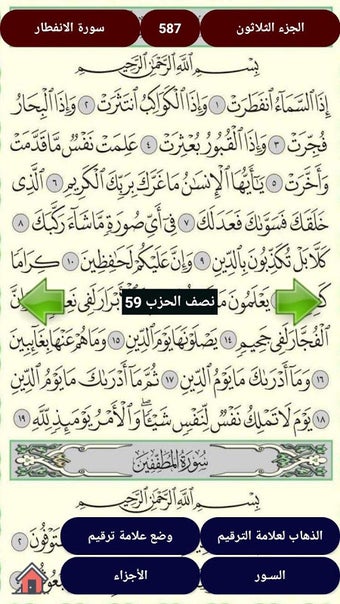 الجزء الثلاثون
587
سورة الانفطار
بِسْمِ اللَّهِ الرَّحْمَٰنِ الرَّحِيمِ
إِذَا السَّمَاءُ انفَطَرَتْ ١ وَإِذَا الْكَوَاكِبُ انتَثَرَتْ ٢ وَإِذَا الْبِحَارُ
فُجِّرَتْ ٣ وَإِذَا الْقُبُورُ بُعْثِرَتْ ٤ عَلِمَتْ نَفْسٌ مَّا قَدَّمَتْ
وَأَخَّرَتْ ٥ يَا أَيُّهَا الْإِنسَانُ مَا غَرَّكَ بِرَبِّكَ الْكَرِيمِ ٦ الَّذِي
خَلَقَكَ فَسَوَّىٰكَ فَعَدَلَكَ ٧ فِي أَيِّ صُورَةٍ مَّا شَاءَ رَكَّبَكَ ٨
كَلَّا بَلْ تُكَذِّبُونَ بِالدِّينِ ٩ وَإِنَّ عَلَيْكُمْ لَحَافِظِينَ ١٠ كِرَامًا
يَعْلَمُونَ
لَفِي
نصف الحزب 59
الْفُجَّارَ لَفِي جَحِيمٍ ١٤ يَصْلَوْنَهَا يَوْمَ الدِّينِ ١٥ وَمَا هُمْ عَنْهَا بِغَائِبِينَ
١٦ وَمَا أَدْرَاكَ مَا يَوْمُ الدِّينِ ١٧ ثُمَّ مَا أَدْرَاكَ مَا يَوْمُ الدِّينِ
١٨ يَوْمَ لَا تَمْلِكُ نَفْسٌ لِّنَفْسٍ شَيْئًا ۖ وَالْأَمْرُ يَوْمَئِذٍ لِّلَّهِ ١٩
سُورَةُ الْمُطَفِّفِينَ
بِسْمِ اللَّهِ الرَّحْمَٰنِ الرَّحِيمِ
الذهاب لعلامة الترقيم
وضع علامة ترقيم
السور
الأجزاء